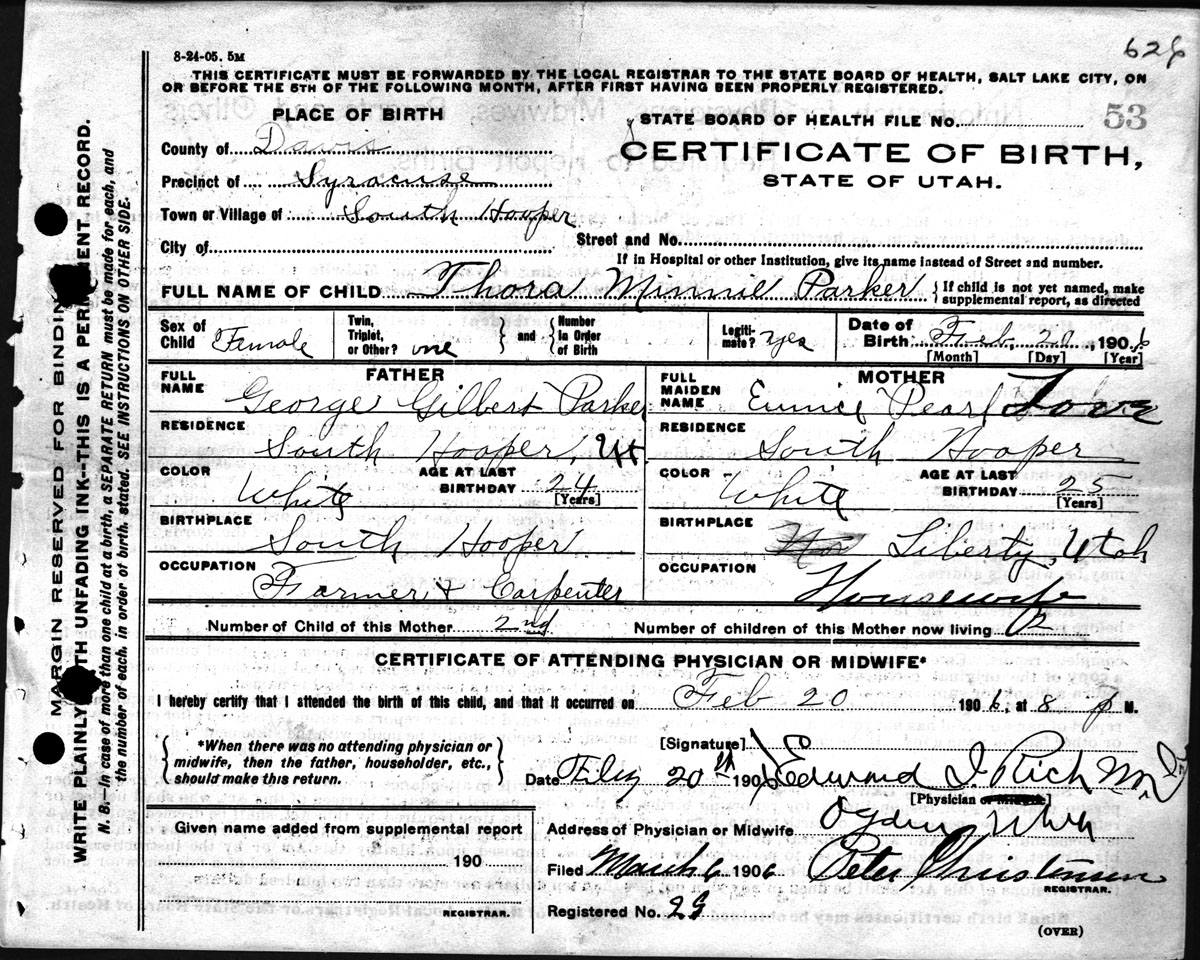 626
8-24-05. 5M
THIS CERTIFICATE MUST BE FORWARDED BY THE LOCAL REGISTRAR TO THE STATE BOARD OF HEALTH, SALT LAKE CITY, ON
OR BEFORE THE 5TH OF THE FOLLOWING MONTH, AFTER FIRST HAVING BEEN PROPERLY REGISTERED.
PLACE OF BIRTH
STATE BOARD OF HEALTH FILE No. 53
County of Davis
CERTIFICATE OF BIRTH,
Precinct of Syracuse
STATE OF UTAH.
Town or Village of South Hooper
City of
Street and No.
If in Hospital or other Institution, give its name instead of Street and number.
FULL NAME OF CHILD Thora Minnie Parker
If child is not yet named, make
supplemental report, as directed
Sex of Child Female
Twin, Triplet, or Other? one
and
Number in Order of Birth
Legiti- mate? yes
Date of Birth Feb. 20, 1906
[Month] [Day] [Year]
FATHER
FULL NAME George Gilbert Parker
RESIDENCE South Hooper, Ut.
COLOR White
AGE AT LAST BIRTHDAY 24 [Years]
BIRTHPLACE South Hooper
OCCUPATION Farmer & Carpenter
MOTHER
FULL MAIDEN NAME Eunice Pearl
RESIDENCE South Hooper
COLOR White
AGE AT LAST BIRTHDAY 25 [Years]
BIRTHPLACE Liberty, Utah
OCCUPATION Housewife
Number of Child of this Mother 2nd
Number of children of this Mother now living 2
CERTIFICATE OF ATTENDING PHYSICIAN OR MIDWIFE*
I hereby certify that I attended the birth of this child, and that it occurred on Feb 20 1906, at 8 P M.
*When there was no attending physician or
midwife, then the father, householder, etc.,
should make this return.
[Signature] Edward I. Rich M.D.
Date 20th 190
[Physician or Midwife]
Given name added from supplemental report
190
REGISTRAR.
Address of Physician or Midwife Ogden Utah
Filed March 6 1906 Peter Christensen
REGISTRAR.
Registered No. 29
(OVER)
MARGIN RESERVED FOR BINDING
WRITE PLAINLY WITH UNFADING INK--THIS IS A PERMANENT RECORD.
N. B.--In case of more than one child at a birth, a SEPARATE RETURN must be made for each, and
the number of each, in order of birth, stated. SEE INSTRUCTIONS ON OTHER SIDE.